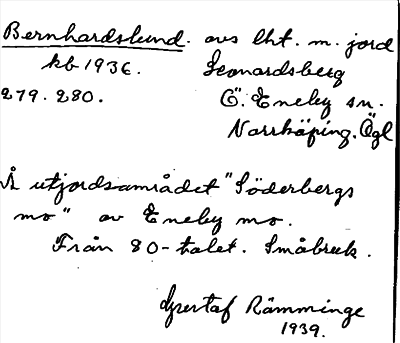 Bernhardslund. avs lht. m. jord
kb 1936. Leonardsberg
279. 280. Ö. Eneby sn.
Norrköping. Ögl
Å utjordsområdet "Söderbergs
mo" av Eneby mo.
Från 80-talet. Småbruk.
Gustaf Rämminge
1939.